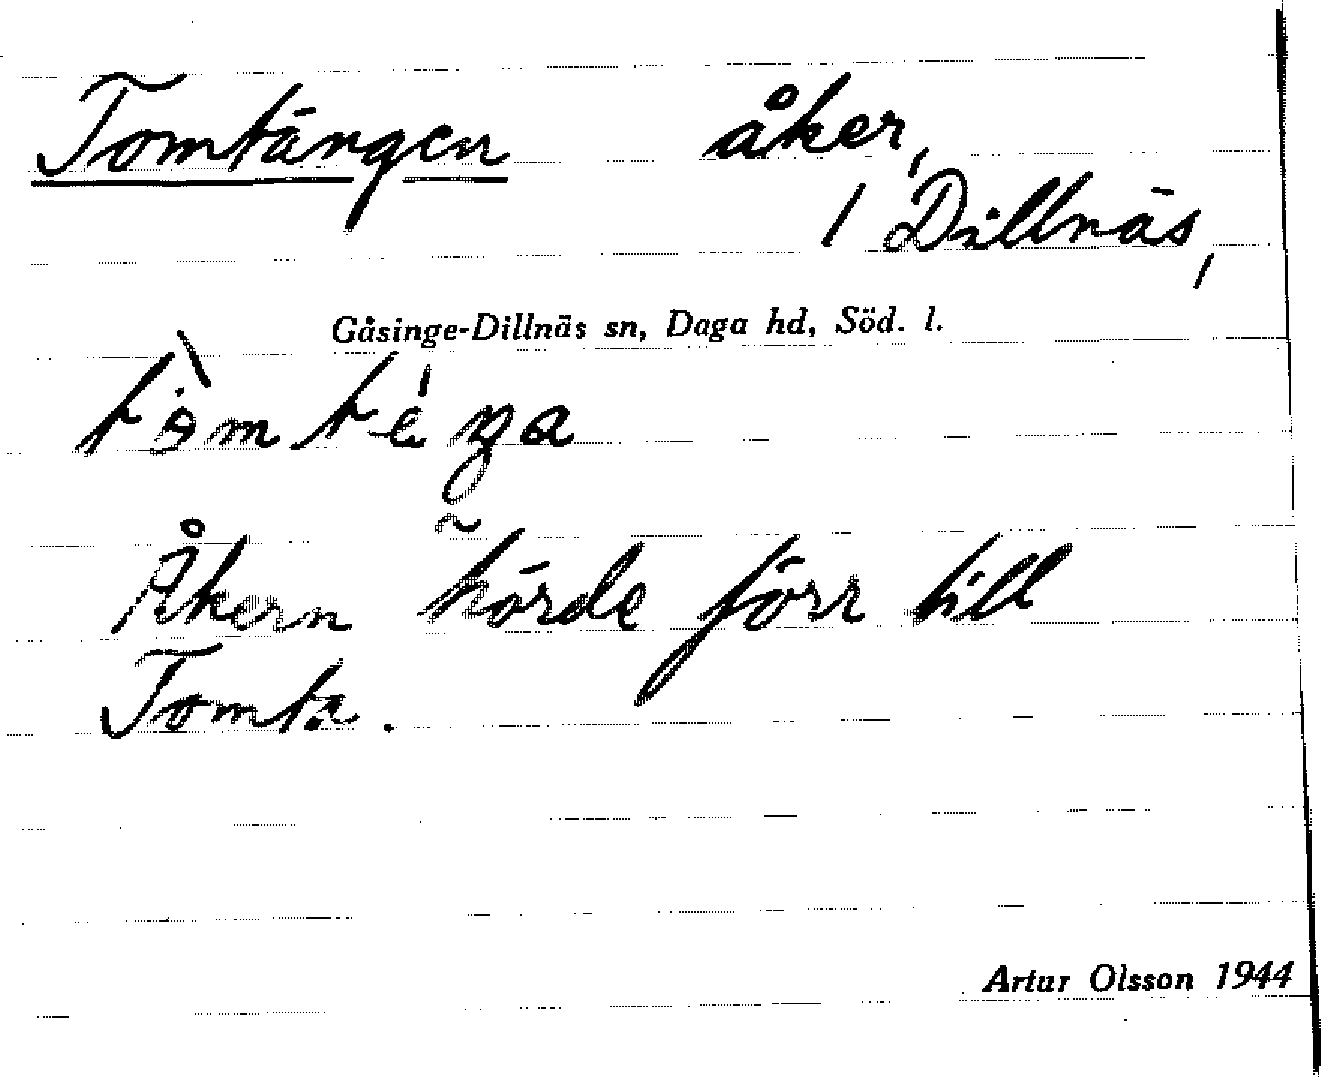 Tomtängen åker,
/ Dillnäs,
Gåsinge-Dillnäs sn, Daga hd, Söd. l.
Åkern hörde förr till
Tomta.
Artur Olsson 1944